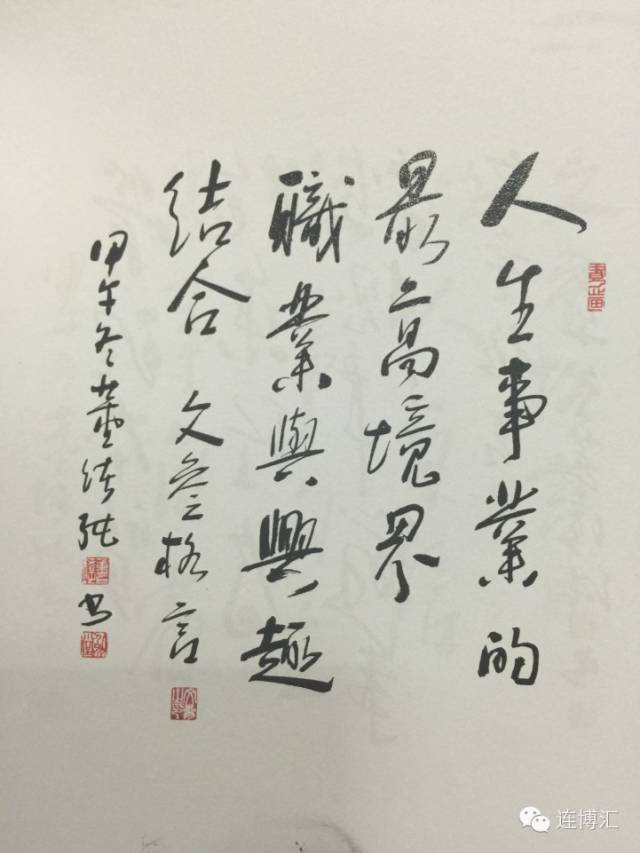 人生事業的
最高境界
職業與興趣
結合 文叁格言
甲午冬董
书
连博汇